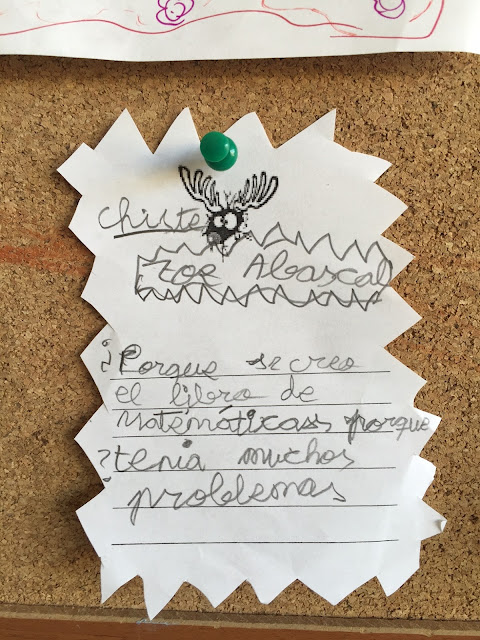 chiste
Zoe Abascal
¿Porque se creo
el libro de
matemáticass porque
?tenia muchos
problemas